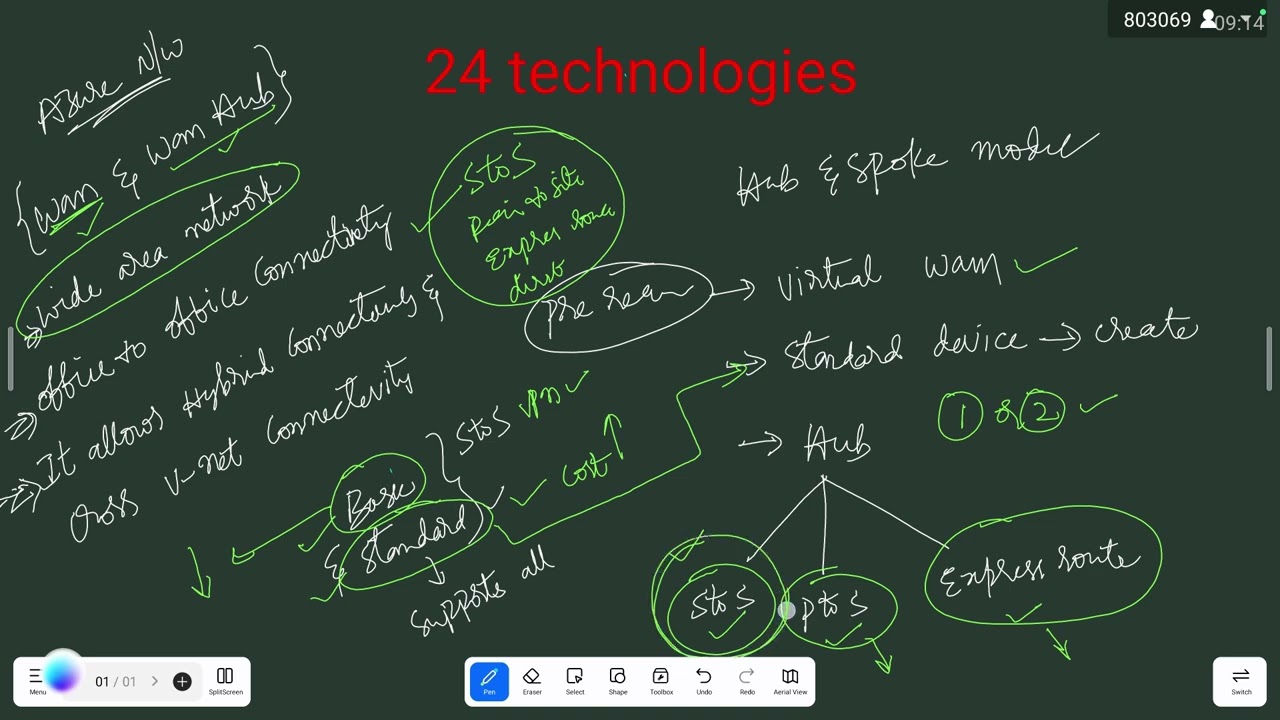 803069
09:14
24 technologies
Azure N/W
{ wan & wan Hub }
wide area network
office to office Connectivity
It allows Hybrid Connectivity &
Cross V-net Connectivity
StoS
Point to site
Express route
direct
Basic
& Standard
StoS VPN
Cost
supports all
Hub & spoke model
→ virtual wan
→ Standard device → create
1 or 2
→ Hub
StoS
PtoS
Express route
Menu
01 / 01
SplitScreen
Pen
Eraser
Select
Shape
Toolbox
Undo
Redo
Aerial View
Switch